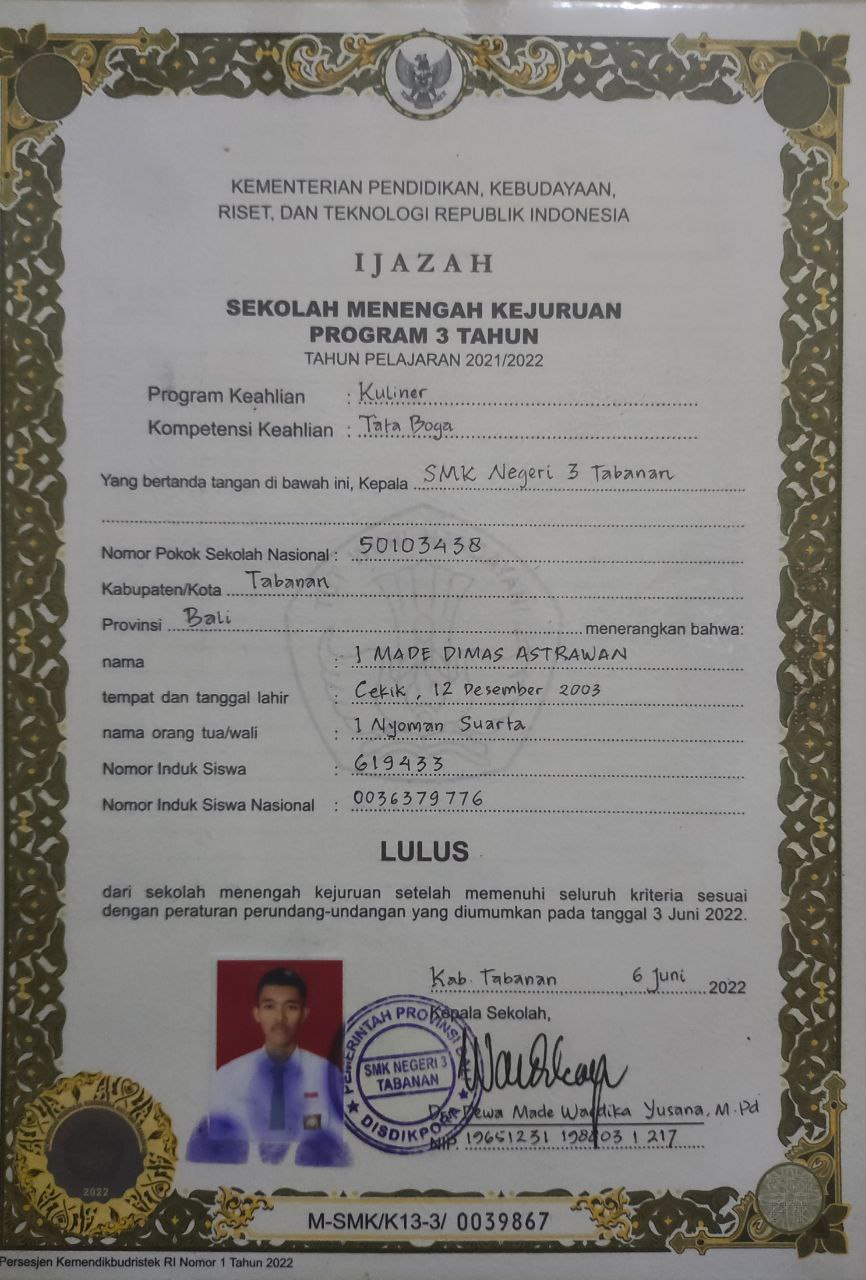 KEMENTERIAN PENDIDIKAN, KEBUDAYAAN,
RISET, DAN TEKNOLOGI REPUBLIK INDONESIA
IJAZAH
SEKOLAH MENENGAH KEJURUAN
PROGRAM 3 TAHUN
TAHUN PELAJARAN 2021/2022
Program Keahlian : Kuliner
Kompetensi Keahlian : Tata Boga
Yang bertanda tangan di bawah ini, Kepala SMK Negeri 3 Tabanan
Nomor Pokok Sekolah Nasional : 50103438
Kabupaten/Kota Tabanan
Provinsi Bali menerangkan bahwa:
nama : I MADE DIMAS ASTRAWAN
tempat dan tanggal lahir : Cekik, 12 Desember 2003
nama orang tua/wali : I Nyoman Suarta
Nomor Induk Siswa : 619433
Nomor Induk Siswa Nasional : 0036379776
LULUS
dari sekolah menengah kejuruan setelah memenuhi seluruh kriteria sesuai
dengan peraturan perundang-undangan yang diumumkan pada tanggal 3 Juni 2022.
Kab. Tabanan, 6 Juni 2022
Kepala Sekolah,
PEMERINTAH PROVINSI
SMK NEGERI 3
TABANAN
DISDIKPORA
Dewa Made Wardika Yusana, M.Pd
NIP. 19651231 198803 1 217
2022
M-SMK/K13-3/ 0039867
Persesjen Kemendikbudristek RI Nomor 1 Tahun 2022